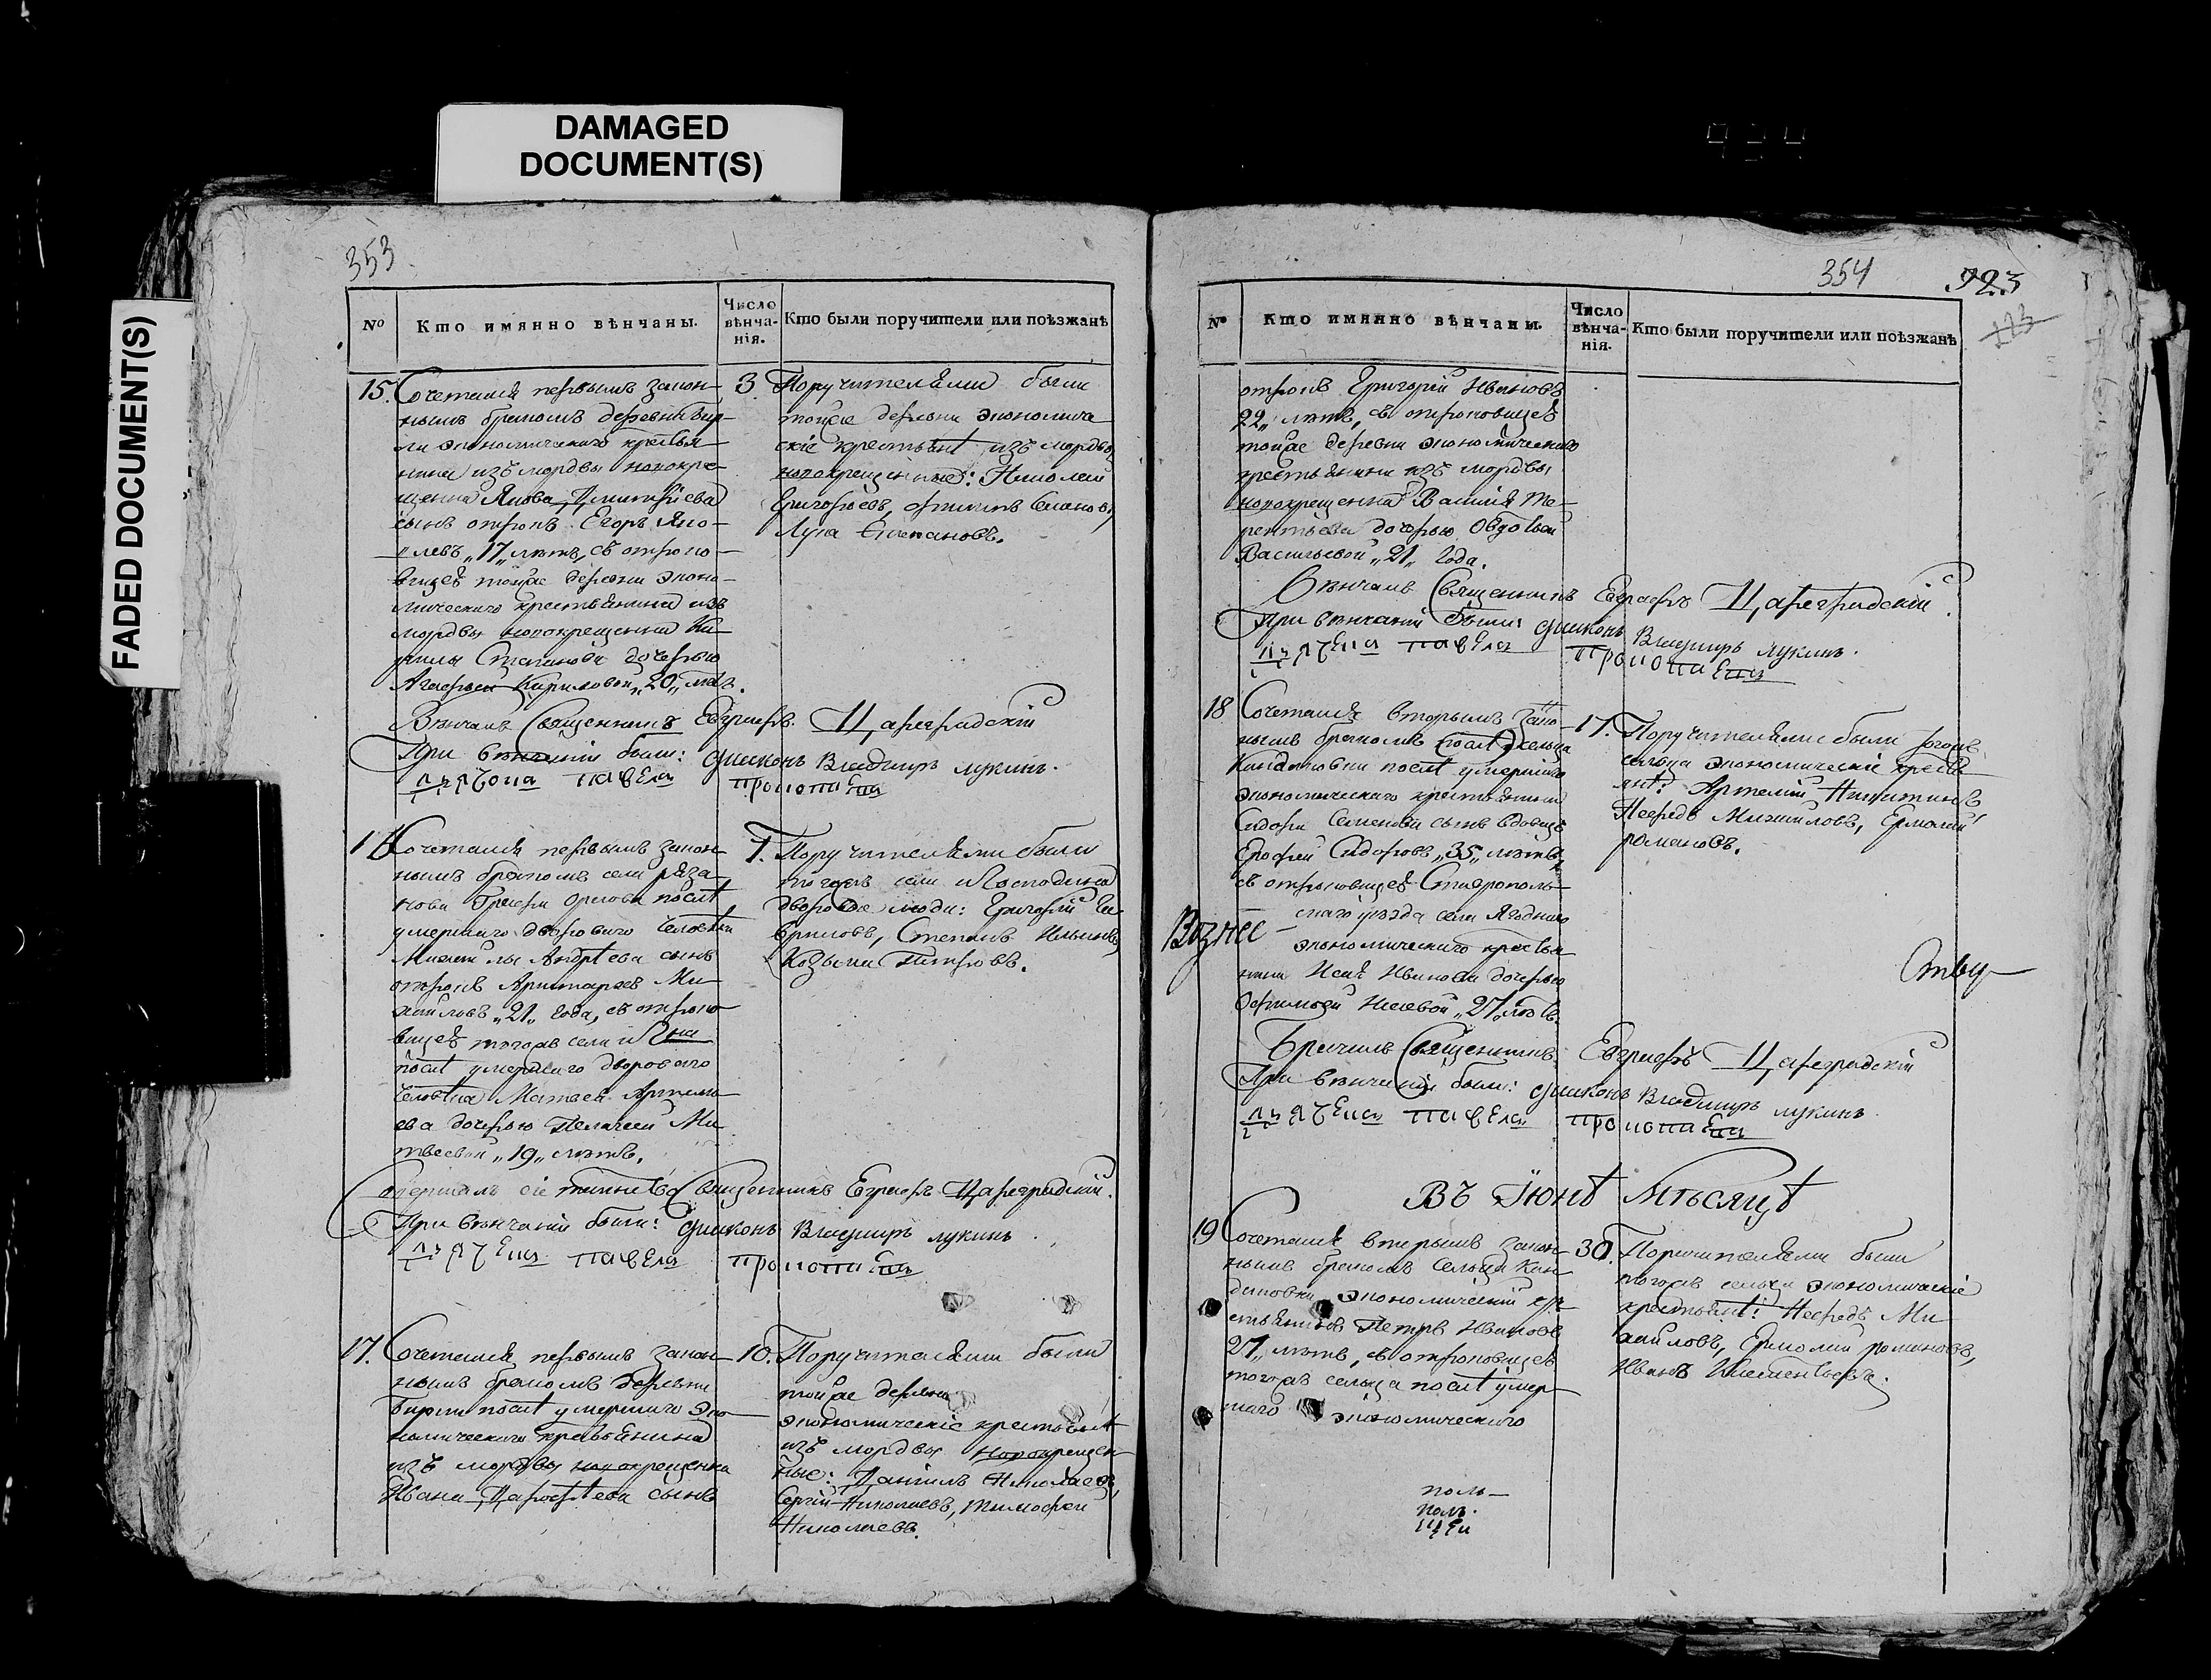 DAMAGED
DOCUMENT(S)
FADED DOCUMENT(S)
353
№
Кто имянно вѣнчаны.
Число
вѣнча-
нія.
Кто были поручители или поѣзжанѣ
15. Сочетался первымъ закон-
нымъ бракомъ деревни Бир-
ли экономическаго крестья-
нина изъ мордвы новокре-
щенна Якова Дмитріева
сынъ отрокъ Егоръ Яко-
влевъ „17„ лѣтъ, съ отроко-
вицеѣ тойже деревни эконо-
мическаго крестьянина изъ
мордвы новокрещенна Ки-
рилы Степанова дочерью
Агафьей Кириловой „20„ лѣтъ.
3. Поручителями были
тойже деревни экономиче
скіе крестьянѣ изъ мордвы
новокрещенные: Николай
Григорьевъ, Семеновъ,
Лука Степановъ.
Вѣнчалъ Священникъ Евграфъ Цареградскій
При вѣнчаніи были: Діяконъ Владимръ Лукинъ.
16 Сочетался первымъ закон-
нымъ бракомъ села Ряза-
нова Графа Орлова послѣ
умершаго двороваго человѣка
Михайлы Андрѣева сынъ
отрокъ Аристархъ Ми-
хайловъ „21„ года, съ отроко-
вицеѣ тогожъ села и Г-на
послѣ умершаго двороваго
человѣка Матвея Артемь-
ева дочерью Пелагеей Ма-
твеевой „19„ лѣтъ.
7. Поручителями были
тогожъ села и Господина
дворовые люди: Григорій Га-
вриловъ, Степанъ Ильинъ,
Козьма Петровъ.
Совершалъ сіе таинство Священникъ Евграфъ Цареградскій.
При вѣнчаніи были: Діяконъ Владимръ Лукинъ.
17. Сочетался первымъ закон-
нымъ бракомъ деревни
Бирли послѣ умершаго эко-
номическаго крестьянина
изъ мордвы новокрещенна
Ивана Дарофѣева сынъ
10. Поручителями были
тойже деревни
экономическіе крестьянѣ
изъ мордвы новокрещен-
ные: Данилъ Николаевъ,
Сергѣй Николаевъ, Тимофей
Николаевъ.
354
923
№
Кто имянно вѣнчаны.
Число
вѣнча-
нія.
Кто были поручители или поѣзжанѣ
отрокъ Григорій Ивановъ
22„ лѣтъ, съ отроковицеѣ
тойже деревни экономическаго
крестьянина изъ мордвы
новокрещенна Василія Те-
рентьева дочерью Овдотьей
Васильевой „21„ года.
Вѣнчалъ Священникъ Евграфъ Цареградскій.
При вѣнчаніи были: Діяконъ Владимръ Лукинъ.
18 Сочетался вторымъ зако-
нымъ бракомъ сельца
послѣ умершаго
экономическаго крестьянина
Сидора Семенова сынъ вдовецъ
Ерофей Сидоровъ „35„ лѣтъ,
съ отроковицеѣ Ставрополь-
скаго уѣзда села Ягоднаго
экономическаго крестья-
нина Исая Иванова дочерью
Офимьей Исаевой „27„ лѣтъ.
17. Поручителями были тогожъ
сельца экономическіе кресть-
янѣ: Артемій Никитинъ
Нефедъ Михайловъ, Ермолай
Романовъ.
Вознес-
Ству-
Брачилъ Священникъ Евграфъ Цареградскій
При вѣнчаніи были: Діяконъ Владимръ Лукинъ.
Въ Іюнѣ Мѣсяцѣ
19 Сочетался вторымъ закон-
нымъ бракомъ сельца Кан-
даковки экономическій кре-
стьянинъ Петръ Ивановъ
27„ лѣтъ, съ отроковицеѣ
тогожъ сельца послѣ умер-
шаго экономическаго
30. Поручителями были
тогожъ сельца экономическіе
крестьянѣ: Нефедъ Ми-
хайловъ, Ермолай Романовъ,
Иванъ